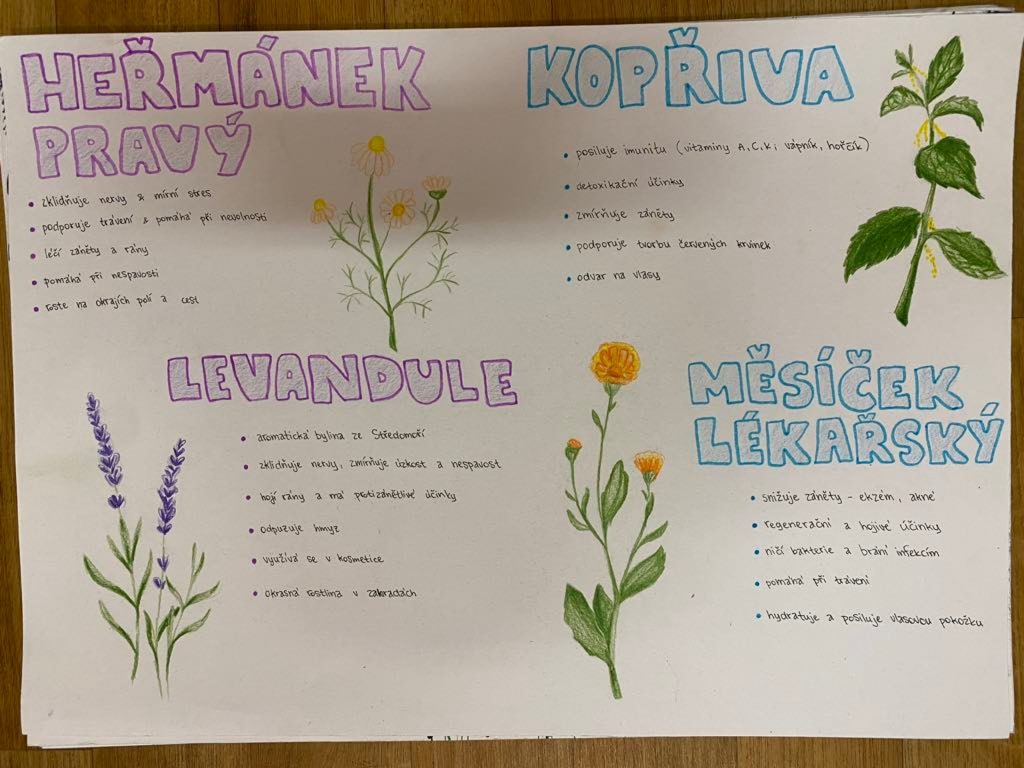 HEŘMÁNEK
PRAVÝ
• zklidňuje nervy & mírní stres
• podporuje trávení & pomáhá při nevolnosti
• léčí záněty a rány
• pomáhá při nespavosti
• roste na okrajích polí a cest
KOPŘIVA
• posiluje imunitu (vitamíny A,C,K; vápník, hořčík)
• detoxikační účinky
• zmírňuje záněty
• podporuje tvorbu červených krvinek
• odvar na vlasy
LEVANDULE
• aromatická bylina ze Středomoří
• zklidňuje nervy, zmírňuje úzkost a nespavost
• hojí rány a má protizánětlivé účinky
• odpuzuje hmyz
• využívá se v kosmetice
• okrasná rostlina v zahradách
MĚSÍČEK
LÉKAŘSKÝ
• snižuje záněty - ekzém, akné
• regenerační a hojivé účinky
• ničí bakterie a brání infekcím
• pomáhá při trávení
• hydratuje a posiluje vlasovou pokožku